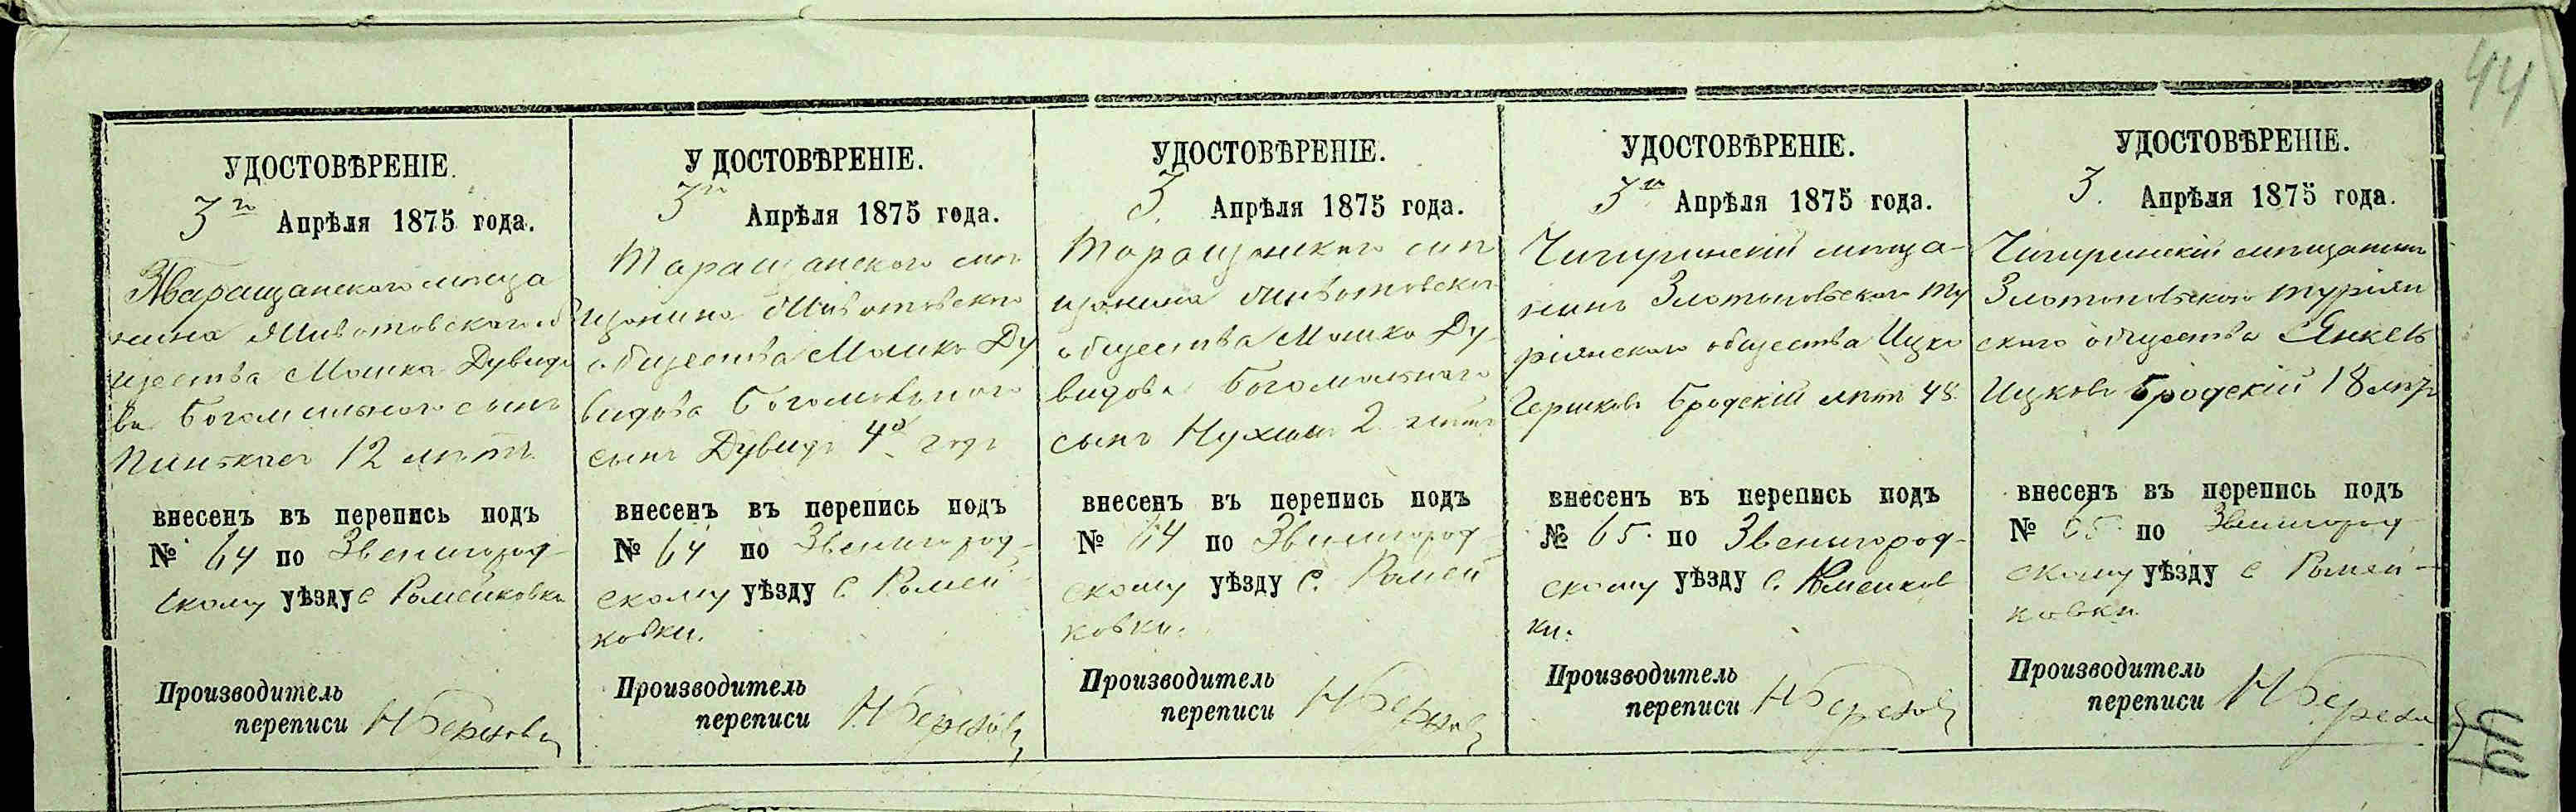 44
УДОСТОВѢРЕНІЕ.
3го Апрѣля 1875 года.
Таращанского мѣща
нина Животовского об
щества Мошка Дувидо
ва Богомольного сынъ
Пинькасъ 12 лѣтъ
внесенъ въ перепись подъ
№ 64 по Звенигород-
скому уѣзду с Ромейковки
Производитель
переписи
УДОСТОВѢРЕНІЕ.
3го Апрѣля 1875 года.
Таращанского мѣ
щанина Животовского
общества Мошка Ду
видова Богомольного
сынъ Дувидъ 4 годъ
внесенъ въ перепись подъ
№ 64 по Звенигород-
скому уѣзду С. Ромей
ковки.
Производитель
переписи
УДОСТОВѢРЕНІЕ.
3. Апрѣля 1875 года.
Таращанского мѣ
щанина Животовского
общества Мошка Ду-
видова Богомольного
сынъ Нухим 2 лѣтъ
внесенъ въ перепись подъ
№ 64 по Звенигород-
скому уѣзду С. Ромей
ковки.
Производитель
переписи
УДОСТОВѢРЕНІЕ.
3го Апрѣля 1875 года.
Чигиринскій мѣща-
нинъ Златопольского Ту
ріянского общества Ицко
Гершковъ Бродскій лѣтъ 48.
внесенъ въ перепись подъ
№ 65. по Звенигород-
скому уѣзду С. Ромейков
ки.
Производитель
переписи
УДОСТОВѢРЕНІЕ.
3. Апрѣля 1875 года.
Чигиринскій мѣщанинъ
Златопольского Туріян
ского общества Янкель
Ицковъ Бродскій 18 лѣтъ
внесенъ въ перепись подъ
№ 65. по Звенигород-
скому уѣзду С Ромей-
ковки.
Производитель
переписи